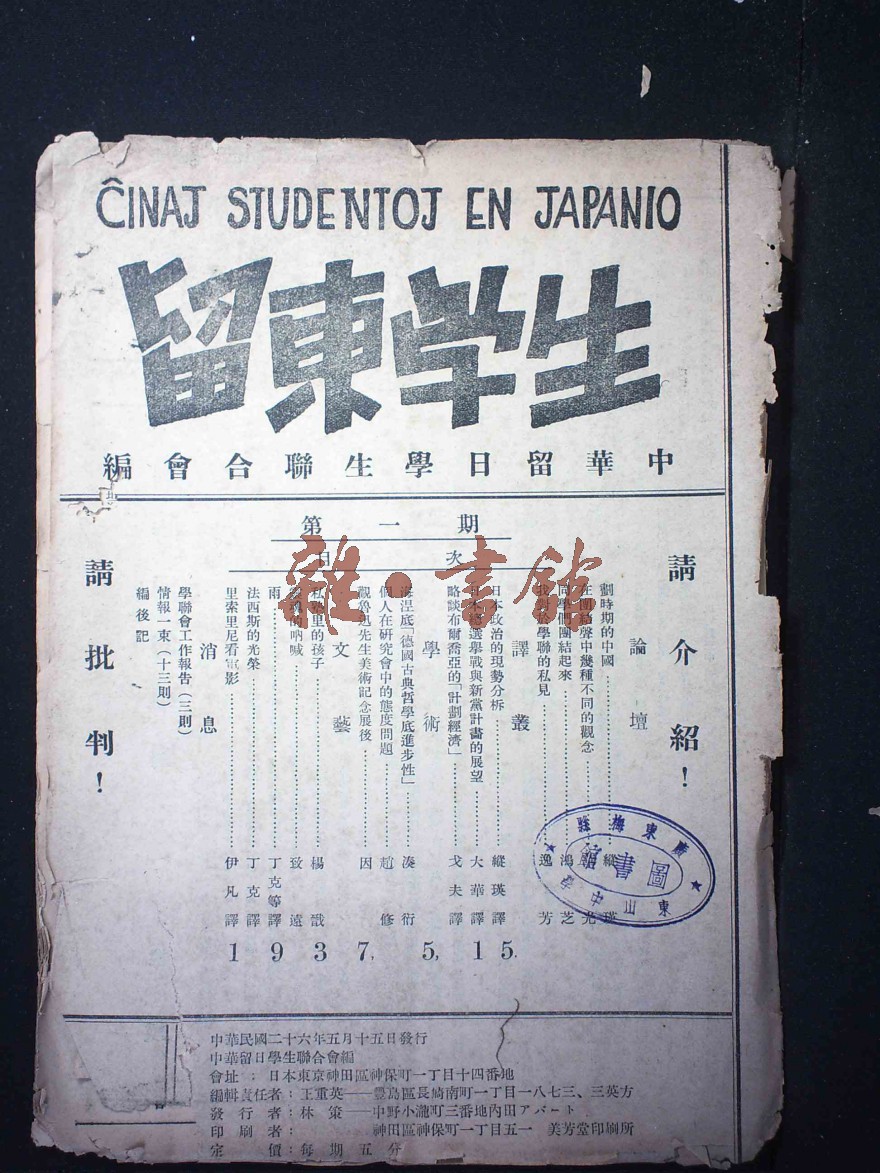 ĈINAJ STUDENTOJ EN JAPANIO
留東学生
中華留日學生聯合會編
第一期
目次
請介紹！
論壇
劃時期的中國
在團結聲中幾種不同的觀念
同學們團結起來 鴻芝
我對於學聯的私見 逸芳
譯叢
日本政治的現勢分析 縱瑛譯
日本總選舉戰與新黨計畫的展望 大華譯
略談布爾喬亞的「計劃經濟」 戈夫譯
學術
海涅底「德國古典哲學底進步性」 湊衍
個人在研究會中的態度問題 趙修
觀魯迅先生美術記念展後 因
文藝
私塾里的孩子 楊戩
靈魂的吶喊 致遠
雨 丁克等譯
法西斯的光榮 丁克譯
里索里尼看電影 伊凡譯
消息
學聯會工作報告（三則）
情報一束（十三則）
編後記
請批判！
1937, 5, 15.
中華民國二十六年五月十五日發行
中華留日學生聯合會編
會址：日本東京神田區神保町一丁目十四番地
編輯責任者：王重英——豐島區長崎南町一丁目一八七三、三英方
發行者：林策——中野小瀧町三番地內田アパート
印刷者：神田區神保町一丁目五一 美芳堂印刷所
定價：每期五分
廣東梅縣
圖書館
東山中學
雜·書館